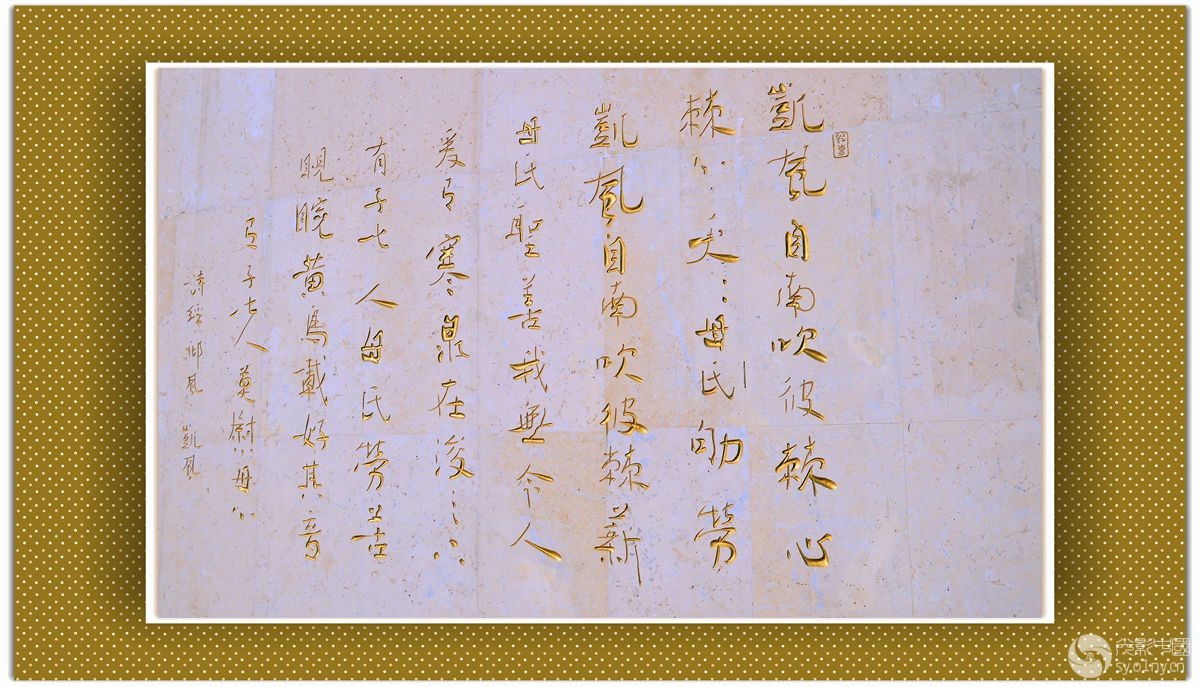 凱風自南吹彼棘心
棘心夭夭母氏劬勞
凱風自南吹彼棘薪
母氏聖善我無令人
爰有寒泉在浚之下
有子七人母氏勞苦
睍睆黃鳥載好其音
有子七人莫慰母心
詩經邶風 凱風
光影中國
sy.o1ny.cn